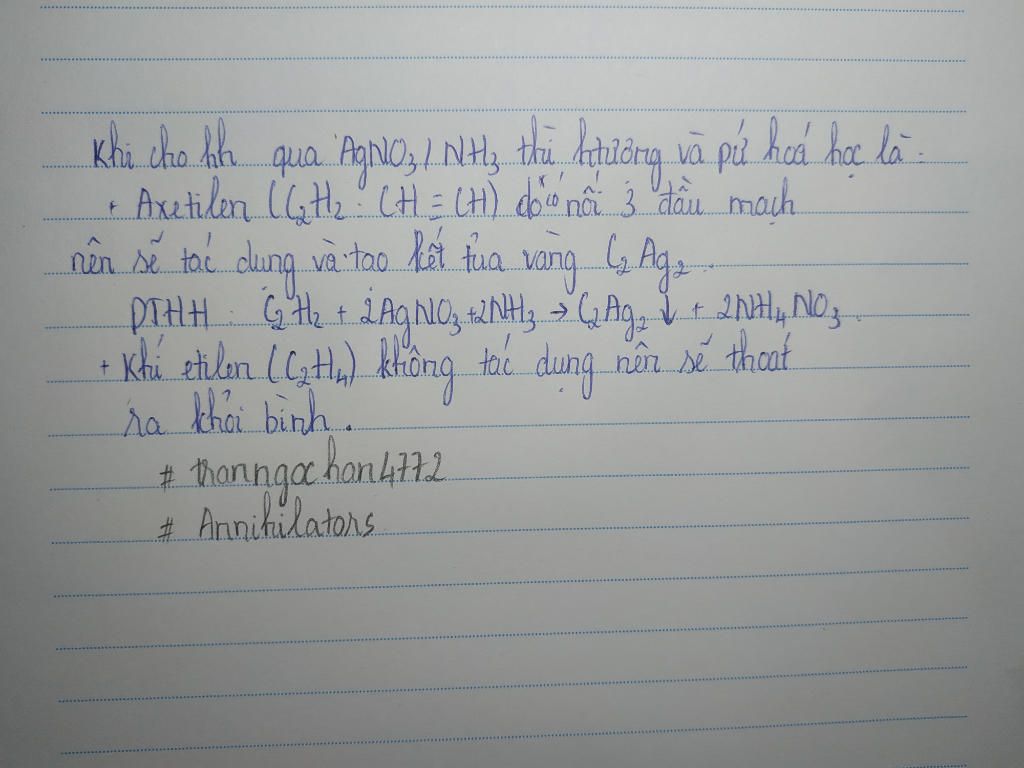 Khi cho hh qua AgNO3/NH3 thì htượng và pứ hoá học là:
+ Axetilen (C2H2: CH≡CH) do có nối 3 đầu mạch
nên sẽ tác dung và tao kết tủa vàng C2Ag2.
PTHH: C2H2 + 2AgNO3 + 2NH3 → C2Ag2 ↓ + 2NH4NO3.
+ Khí etilen (C2H4) không tác dụng nên sẽ thoát
ra khỏi bình.
# thanngochan4772
# Annihilators